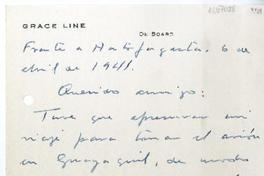 GRACE LINE
On Board
Frente a Antofagasta, 6 de
abril de 1941.
Querido amigo:
Tuve que apresurar mi
viaje para tomar el avión
en Guayaquil, de modo